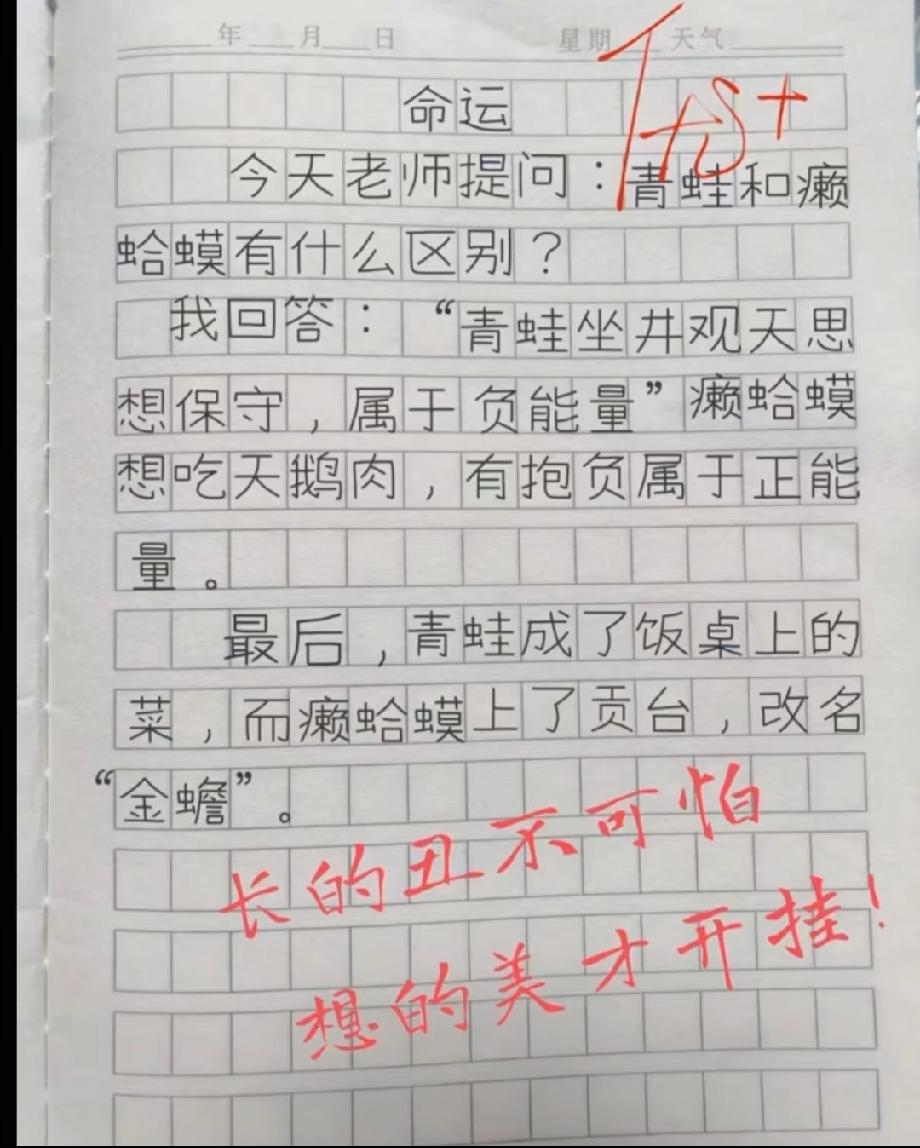 年 月 日 星期 天气
命运
今天老师提问：青蛙和癞
蛤蟆有什么区别？
我回答：“青蛙坐井观天思
想保守，属于负能量”癞蛤蟆
想吃天鹅肉，有抱负属于正能
量。
最后，青蛙成了饭桌上的
菜，而癞蛤蟆上了贡台，改名
“金蟾”。
长的丑不可怕
想的美才开挂！